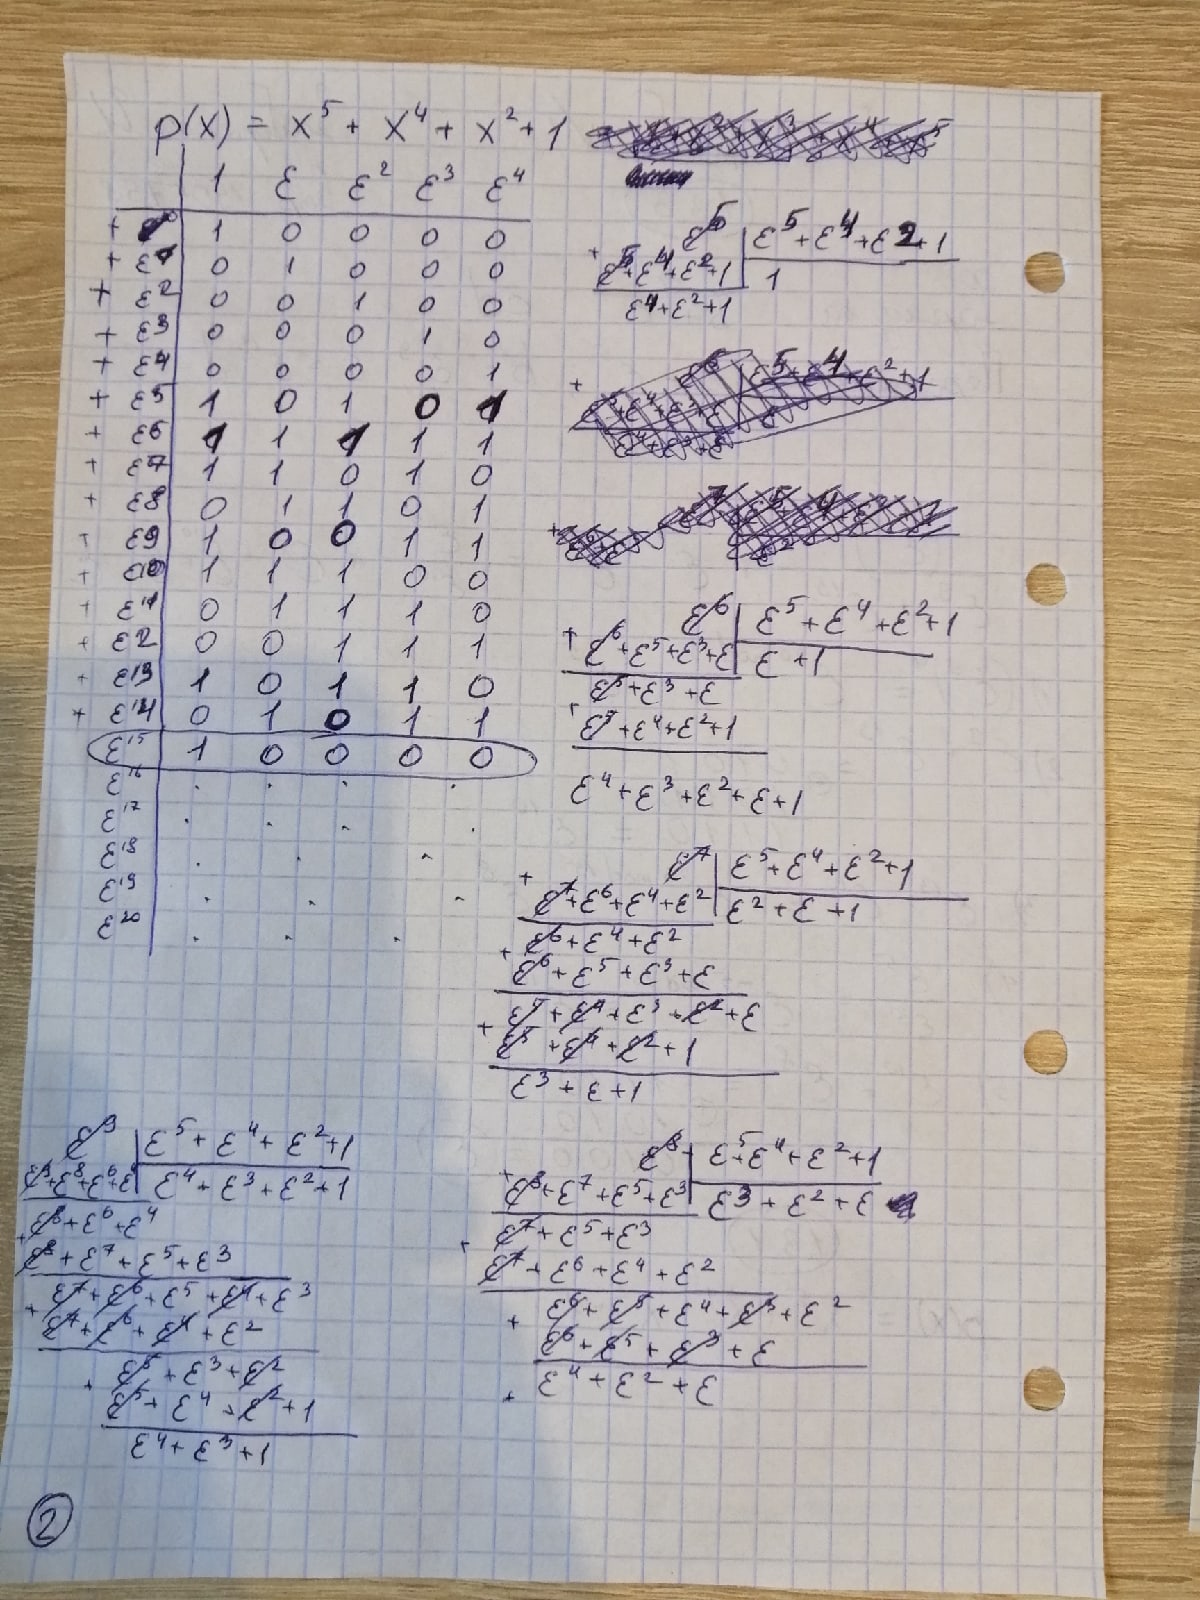 p(x) = x⁵ + x⁴ + x² + 1
1 ε ε² ε³ ε⁴
+ 1 0 0 0 0
+ ε¹ 0 1 0 0 0
+ ε² 0 0 1 0 0
+ ε³ 0 0 0 1 0
+ ε⁴ 0 0 0 0 1
+ ε⁵ 1 0 1 0 1
+ ε⁶ 1 1 1 1 1
+ ε⁷ 1 1 0 1 0
+ ε⁸ 0 1 1 0 1
+ ε⁹ 1 0 0 1 1
+ ε¹⁰ 1 1 1 0 0
+ ε¹¹ 0 1 1 1 0
+ ε² 0 0 1 1 1
+ ε¹³ 1 0 1 1 0
+ ε¹⁴ 0 1 0 1 1
ε¹⁵ 1 0 0 0 0
ε¹⁶ . . . .
ε¹⁷ . . . .
ε¹⁸ . . .
ε¹⁹ . . .
ε²⁰ . . .
ε⁵ | ε⁵+ε⁴+ε²+1
+ ε⁵+ε⁴+ε²+1 | 1
ε⁴+ε²+1
ε⁶ | ε⁵+ε⁴+ε²+1
+ ε⁶+ε⁵+ε³+ε | ε+1
ε⁵+ε³+ε
+ ε⁵+ε⁴+ε²+1
ε⁴+ε³+ε²+ε+1
ε⁷ | ε⁵+ε⁴+ε²+1
+ ε⁷+ε⁶+ε⁴+ε² | ε²+ε+1
ε⁶+ε⁴+ε²
+ ε⁶+ε⁵+ε³+ε
ε⁵+ε⁴+ε³+ε²+ε
+ ε⁵+ε⁴+ε²+1
ε³+ε+1
ε⁹ | ε⁵+ε⁴+ε²+1
ε⁹+ε⁸+ε⁶+ε⁴ | ε⁴+ε³+ε²+1
ε⁸+ε⁶+ε⁴
+ ε⁸+ε⁷+ε⁵+ε³
ε⁷+ε⁶+ε⁵+ε⁴+ε³
+ ε⁷+ε⁶+ε⁴+ε²
ε⁵+ε³+ε²
+ ε⁵+ε⁴+ε²+1
ε⁴+ε³+1
ε⁸ | ε⁵+ε⁴+ε²+1
+ ε⁸+ε⁷+ε⁵+ε³ | ε³+ε²+ε
ε⁷+ε⁵+ε³
+ ε⁷+ε⁶+ε⁴+ε²
ε⁶+ε⁵+ε⁴+ε³+ε²
+ ε⁶+ε⁵+ε³+ε
+ ε⁴+ε²+ε
2